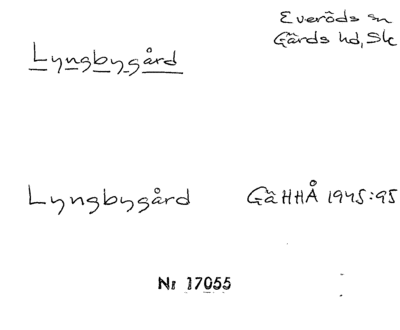 Everöds sn
Gärds hd, Sk
Lyngbygård
Lyngbygård GäHHÅ 1945:95
Nr 17055